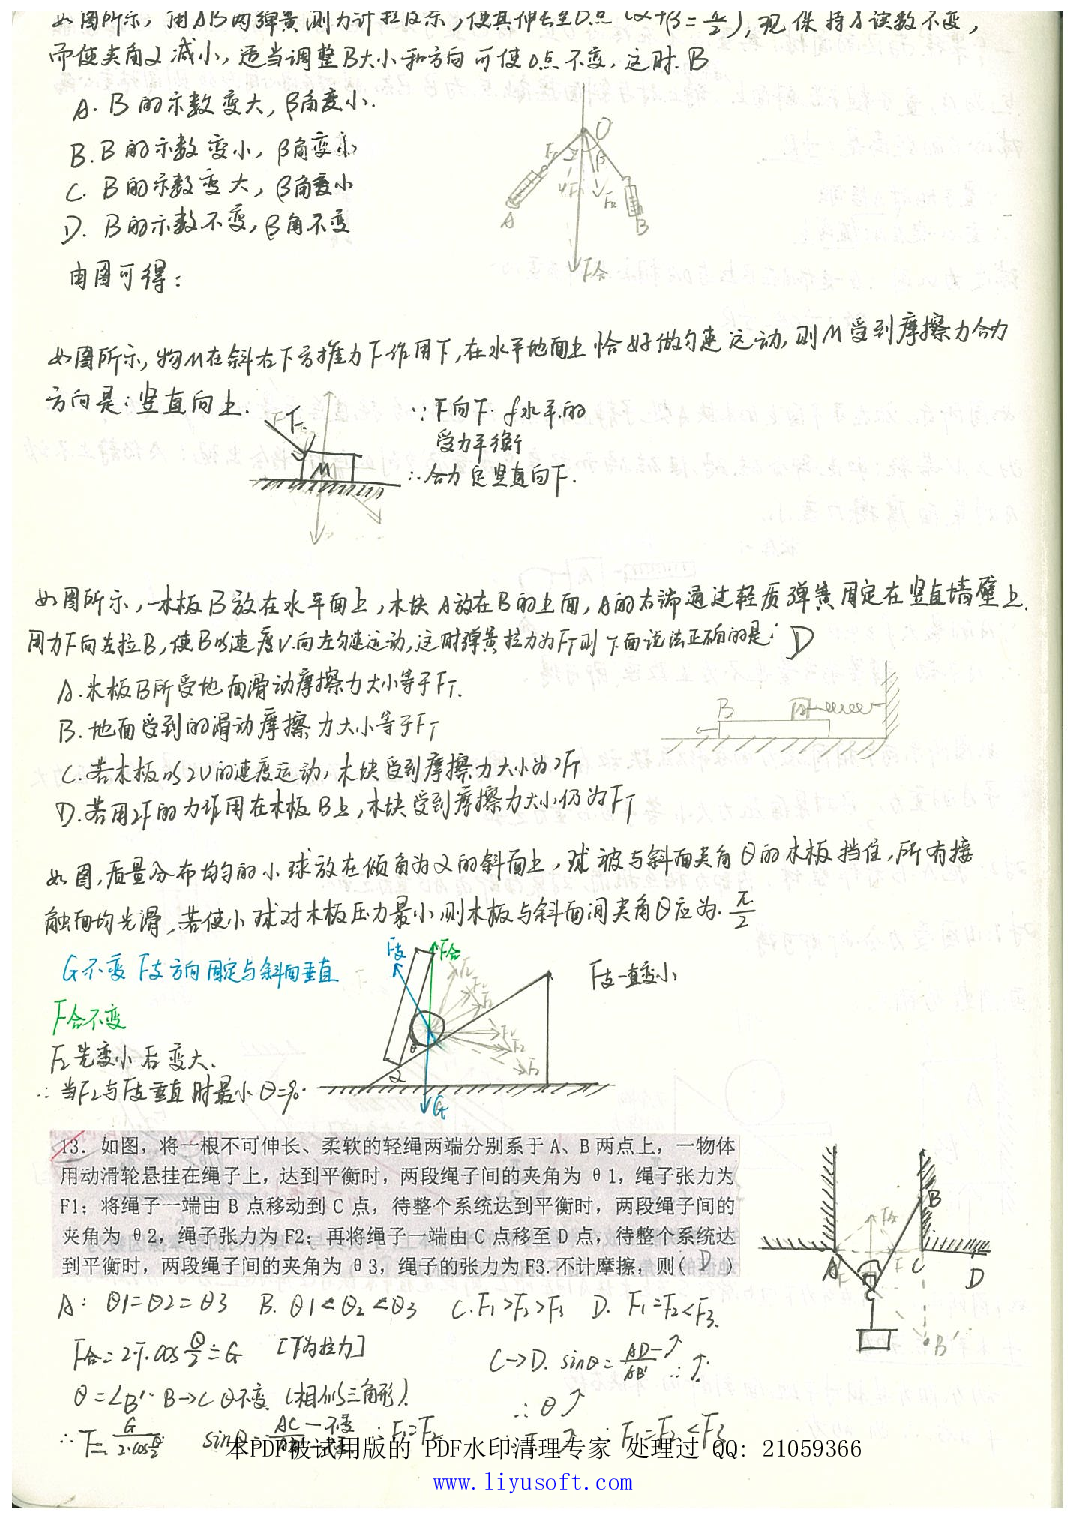 如图所示，用AB两弹簧测力计拉反示，使其伸长至O点（α+β=π/2），现保持A读数不变，
而使夹角α减小，适当调整B大小和方向可使O点不变，这时B
A. B的示数变大，β角变小.
B. B的示数变小，β角变小
C. B的示数变大，β角变小
D. B的示数不变，β角不变
由图可得：
O
A
B
F合
如图所示，物M在斜右下方推力F作用下，在水平地面上恰好做匀速运动，则M受到摩擦力合力
方向是：竖直向上.
∵F向下 f水平的
受力平衡
∴合力定竖直向下.
M
如图所示，一木板B放在水平面上，木块A放在B的上面，A的右端通过轻质弹簧固定在竖直墙壁上.
用力F向左拉B，使B以速度V向左匀速运动，这时弹簧拉力为FT则下面说法正确的是：D
A. 木板B所受地面滑动摩擦力大小等于FT.
B. 地面受到的滑动摩擦力大小等于FT
C. 若木板以2V的速度运动，木块受到摩擦力大小为2FT
D. 若用2F的力作用在木板B上，木块受到摩擦力大小仍为FT
B
如图，质量分布均匀的小球放在倾角为α的斜面上，球被与斜面夹角θ的木板挡住，所有接
触面均光滑，若使小球对木板压力最小则木板与斜面间夹角θ应为. π/2
G不变 F支方向固定与斜面垂直
F支
F合
F支一直变小
F合不变
F2先变小后变大.
∴当F2与F支垂直时最小 θ=90°
α
G
13. 如图，将一根不可伸长、柔软的轻绳两端分别系于 A、B 两点上，一物体
用动滑轮悬挂在绳子上，达到平衡时，两段绳子间的夹角为 θ1，绳子张力为
F1；将绳子一端由 B 点移动到 C 点，待整个系统达到平衡时，两段绳子间的
夹角为 θ2，绳子张力为 F2；再将绳子一端由 C 点移至 D 点，待整个系统达
到平衡时，两段绳子间的夹角为 θ3，绳子的张力为 F3.不计摩擦，则（ D ）
A
B
C
D
B'
A: θ1=θ2=θ3 B. θ1<θ2<θ3 C. F1>F2>F3 D. F1=F2<F3.
F合=2·F·cos θ/2=G [F为拉力]
C→D. sinθ=AD/AB' ↑ ∴↑.
θ=∠B'· B→C θ不变（相似三角形）.
∴θ↑
∴F=G/2·cosθ/2 sinθ
本PDF被试用版的 PDF水印清理专家 处理过 QQ: 21059366
www.liyusoft.com